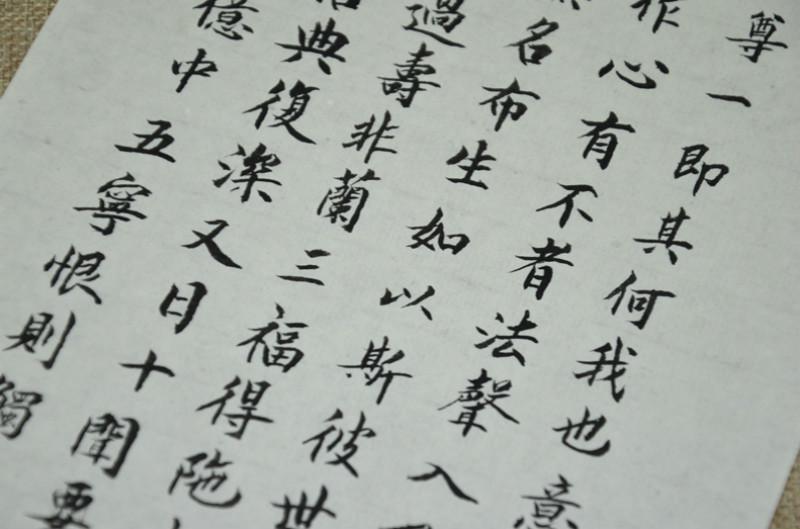 尊一即其何我也意
作心有不者法聲入
名布生如以斯彼世
過壽非蘭三福得陁
典復深又日十聞要
憶中五寧恨則觸